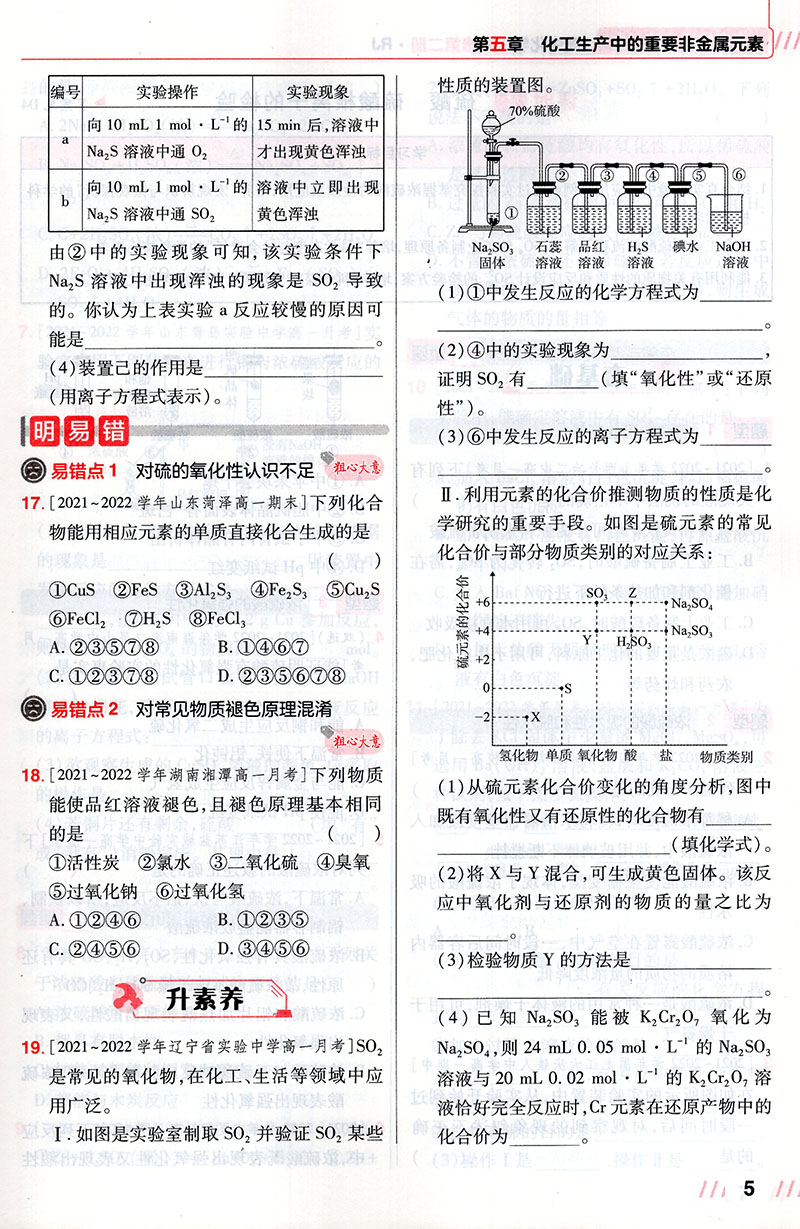 第五章 化工生产中的重要非金属元素
编号 实验操作 实验现象
a 向 10 mL 1 mol·L⁻¹的 Na₂S 溶液中通 O₂ 15 min 后,溶液中才出现黄色浑浊
b 向 10 mL 1 mol·L⁻¹的 Na₂S 溶液中通 SO₂ 溶液中立即出现黄色浑浊
由②中的实验现象可知,该实验条件下
Na₂S 溶液中出现浑浊的现象是 SO₂ 导致
的。你认为上表实验 a 反应较慢的原因可
能是____________。
(4)装置己的作用是____________
(用离子方程式表示)。
明易错
易错点 1 对硫的氧化性认识不足 粗心大意
17. [2021~2022 学年山东菏泽高一期末]下列化合
物能用相应元素的单质直接化合生成的是
( )
①CuS ②FeS ③Al₂S₃ ④Fe₂S₃ ⑤Cu₂S
⑥FeCl₂ ⑦H₂S ⑧FeCl₃
A. ②③⑤⑦⑧ B. ①④⑥⑦
C. ①②③⑦⑧ D. ②③⑤⑥⑦⑧
易错点 2 对常见物质褪色原理混淆
粗心大意
18. [2021~2022 学年湖南湘潭高一月考]下列物质
能使品红溶液褪色,且褪色原理基本相同
的是 ( )
①活性炭 ②氯水 ③二氧化硫 ④臭氧
⑤过氧化钠 ⑥过氧化氢
A. ①②④⑥ B. ①②③⑤
C. ②④⑤⑥ D. ③④⑤⑥
升素养
19. [2021~2022 学年辽宁省实验中学高一月考]SO₂
是常见的氧化物,在化工、生活等领域中应
用广泛。
Ⅰ. 如图是实验室制取 SO₂ 并验证 SO₂ 某些
性质的装置图。
70%硫酸
① ② ③ ④ ⑤ ⑥
Na₂SO₃ 石蕊 品红 H₂S 碘水 NaOH
固体 溶液 溶液 溶液 溶液
(1)①中发生反应的化学方程式为______
____________。
(2)④中的实验现象为____________,
证明 SO₂ 有______(填“氧化性”或“还原
性”)。
(3)⑥中发生反应的离子方程式为______
____________。
Ⅱ. 利用元素的化合价推测物质的性质是化
学研究的重要手段。如图是硫元素的常见
化合价与部分物质类别的对应关系:
硫元素的化合价
+6 SO₃ Z Na₂SO₄
+4 Y H₂SO₃ Na₂SO₃
+2
0 S
−2 X
氢化物 单质 氧化物 酸 盐 物质类别
(1)从硫元素化合价变化的角度分析,图中
既有氧化性又有还原性的化合物有______
____________(填化学式)。
(2)将 X 与 Y 混合,可生成黄色固体。该反
应中氧化剂与还原剂的物质的量之比为
____________。
(3)检验物质 Y 的方法是____________
____________。
(4)已知 Na₂SO₃ 能被 K₂Cr₂O₇ 氧化为
Na₂SO₄,则 24 mL 0. 05 mol·L⁻¹ 的 Na₂SO₃
溶液与 20 mL 0. 02 mol·L⁻¹ 的 K₂Cr₂O₇ 溶
液恰好完全反应时,Cr 元素在还原产物中的
化合价为______。
5